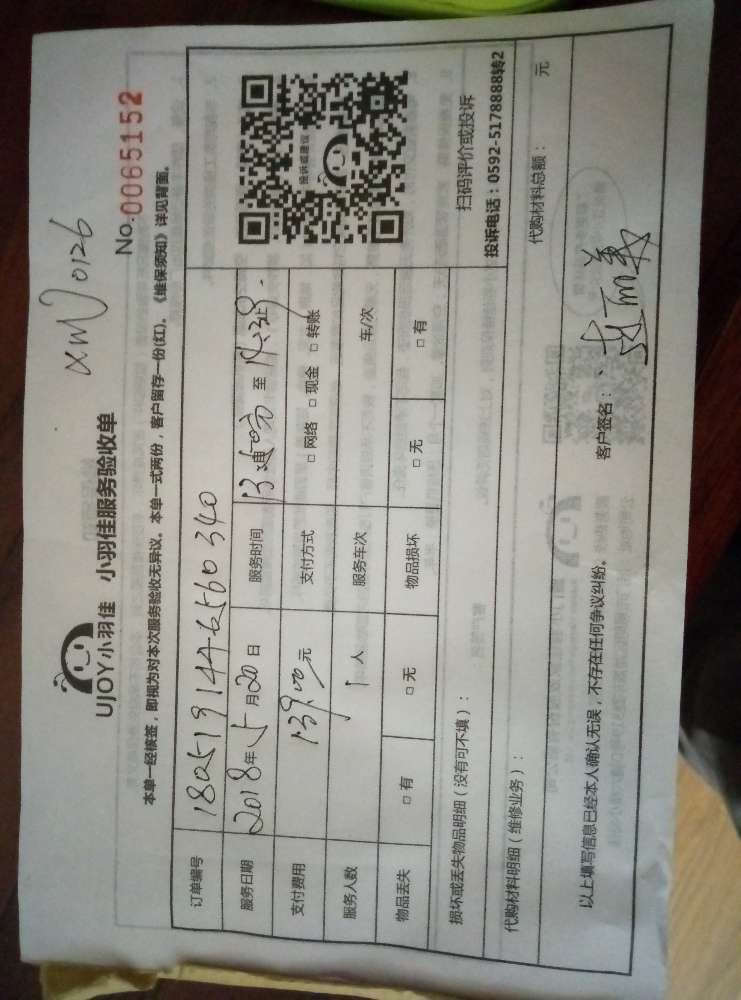 XM 0126
UJOY小羽佳 小羽佳服务验收单
No.0065152
本单一经核签，即视为对本次服务验收无异议。本单一式两份，客户留存一份(红)。《维保须知》详见背面。
订单编号 180519144656034 0
服务日期 2018年5月20日 服务时间 至
支付费用 139.00元 支付方式 □ 网络 □ 现金 □ 转账
服务人数 1 人 服务车次 车/次
物品丢失 □ 有 □ 无 物品损坏 □ 无 □ 有
投诉或建议
扫码评价或投诉
投诉电话：0592-5178888转2
损坏或丢失物品明细（没有可不填）：
代购材料明细（维修业务）： 代购材料总额： 元
以上填写信息已经本人确认无误，不存在任何争议纠纷。 客户签名：